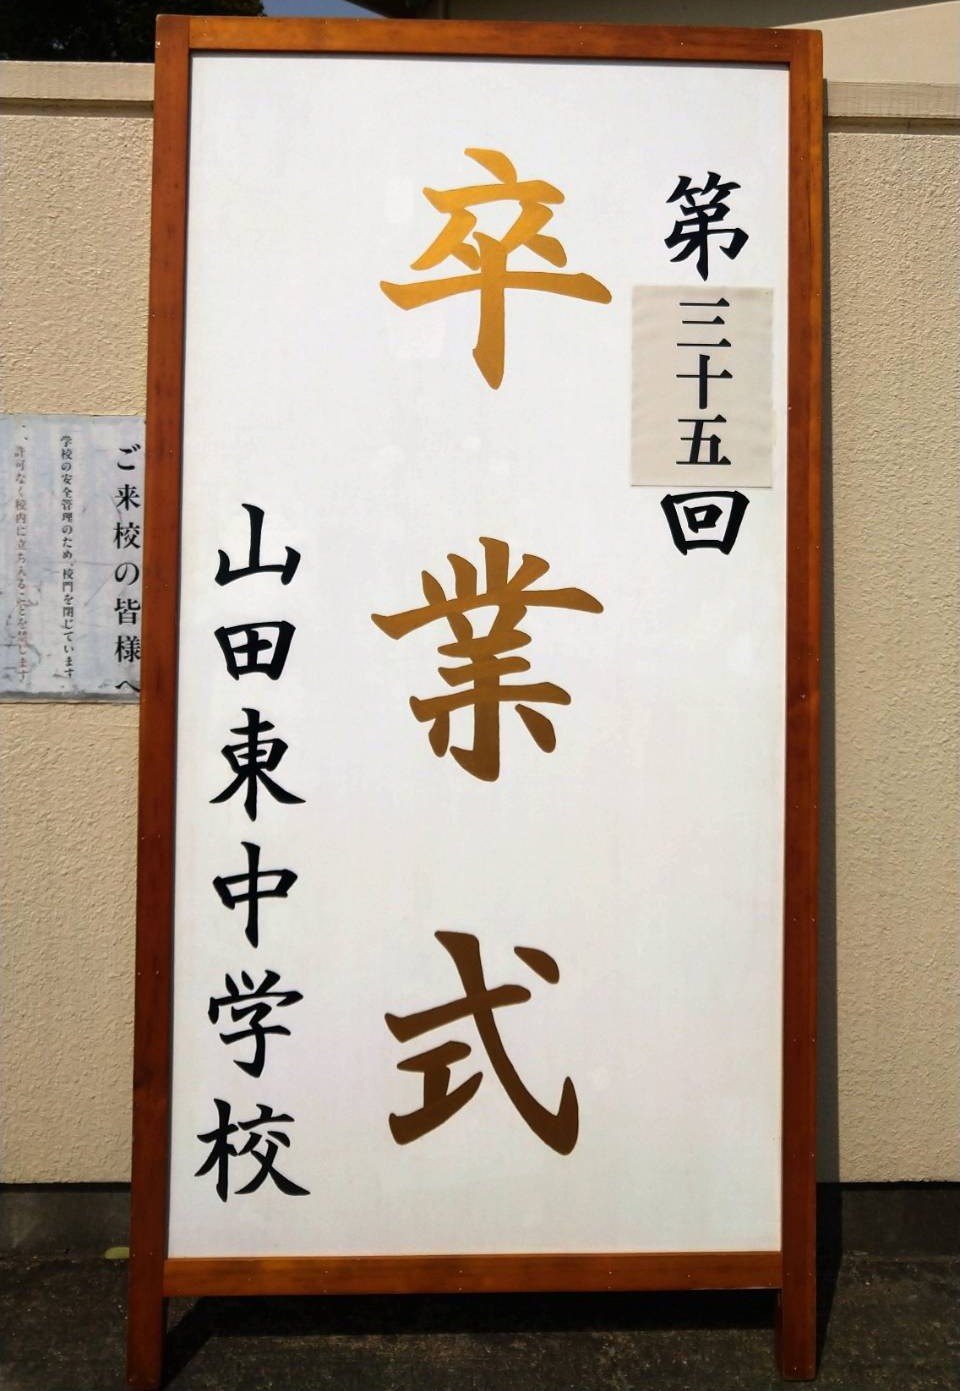 第三十五回
卒業式
山田東中学校
ご来校の皆様へ
学校の安全管理のため、校門を閉じています
許可なく校内に立ち入ることを禁じます